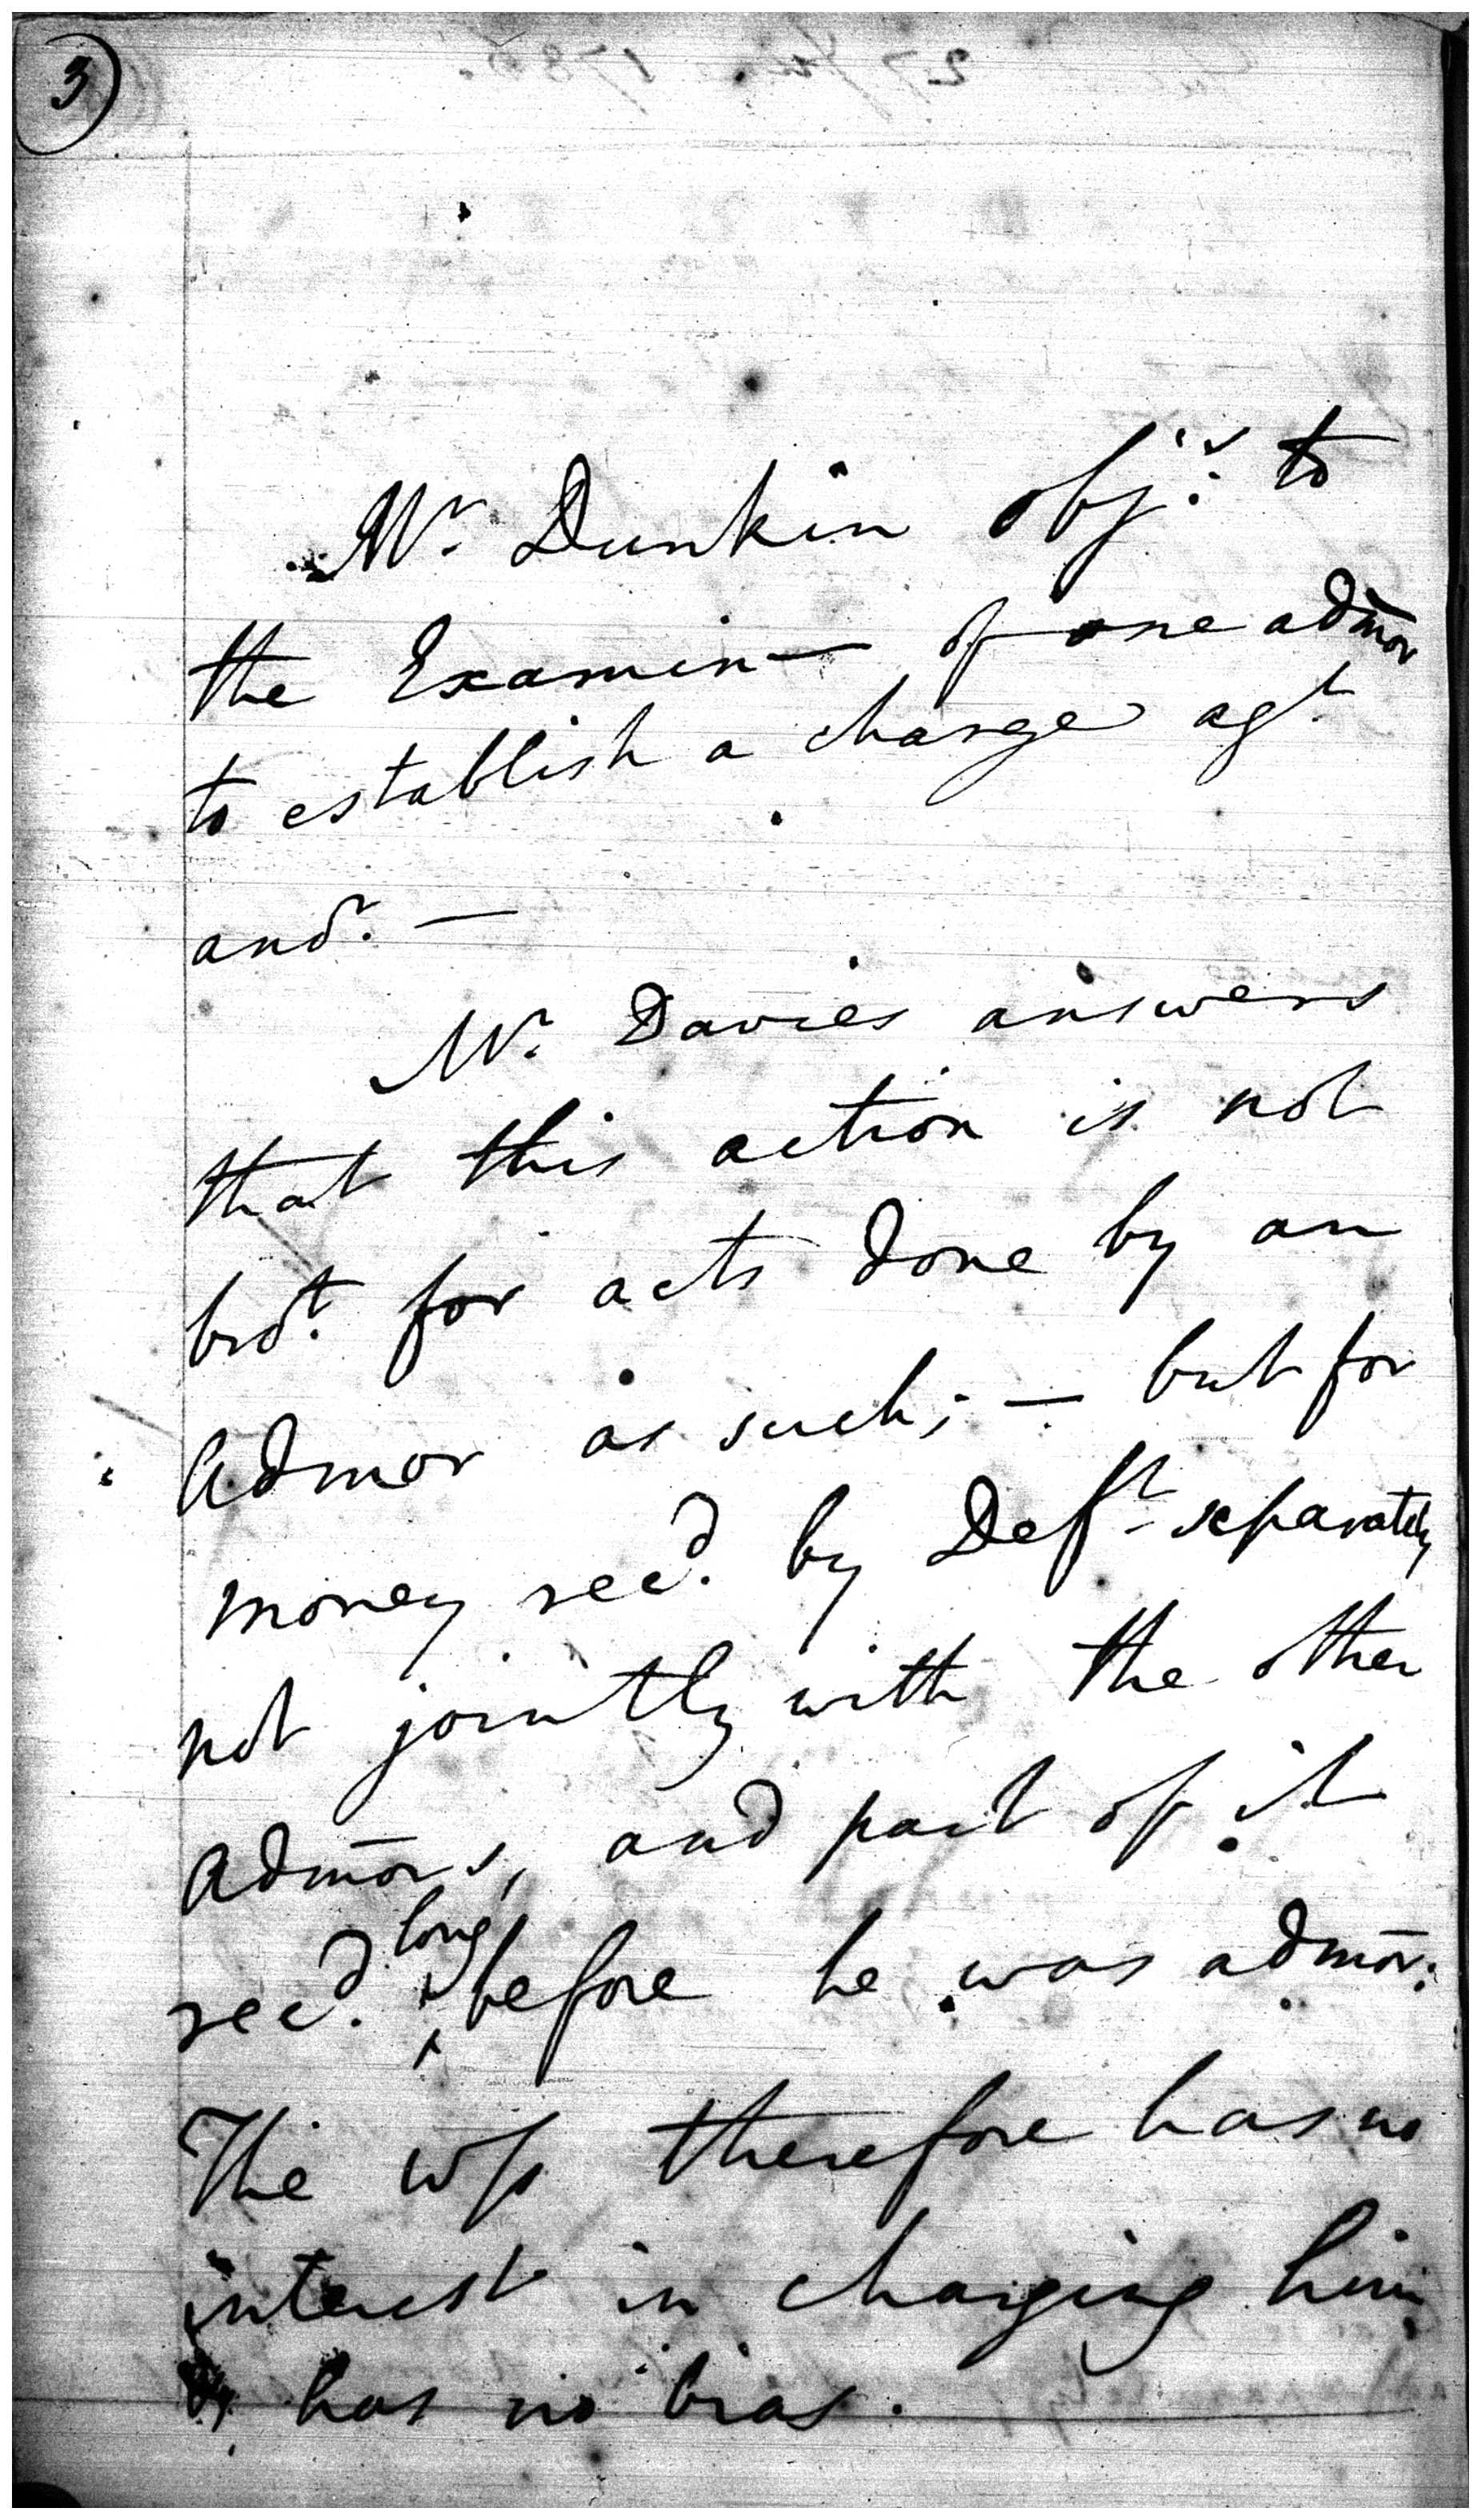 3
Mr. Dunkin objs. to
the Examin— of one admōr
to establish a charge agt.
anōr. —
Mr. Davies answers
that this action is not
brōt. for acts done by an
Admor as such; — but for
money recd. by Deft. separately
not jointly with the other
Admōrs, and part of it
recd. long before he was admōr:
The wss therefore has no
interest in charging him
has no bias.